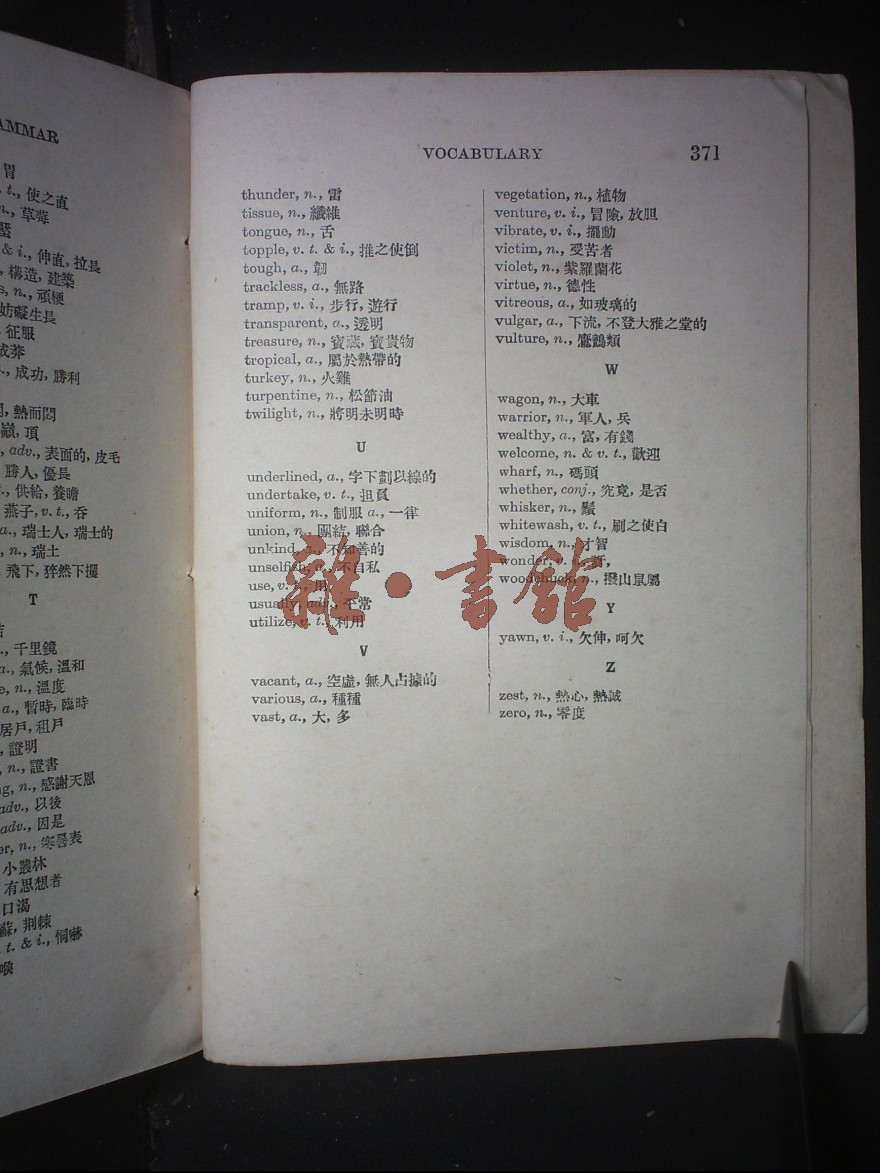 AMMAR
胃
t., 使之直
n., 草莓
& i., 伸直, 拉長
, 構造, 建築
s, n., 頑梗
妨礙生長
, 征服
成莽
., 成功, 勝利
, 熱而悶
巔, 頂
, adv., 表面的, 皮毛
勝人, 優長
., 供給, 養贍
燕子, v. t., 吞
a., 瑞士人, 瑞士的
, n., 瑞士
, 飛下, 猝然下攫
T
., 千里鏡
a., 氣候, 溫和
e, n., 溫度
a., 暫時, 臨時
居戶, 租戶
, 證明
, n., 證書
ng, n., 感謝天恩
adv., 以後
adv., 因是
er, n., 寒暑表
小叢林
有思想者
口渴
蘇, 荆棘
t. & i., 恫嚇
喚
VOCABULARY 371
thunder, n., 雷
tissue, n., 纖維
tongue, n., 舌
topple, v. t. & i., 推之使倒
tough, a., 韌
trackless, a., 無路
tramp, v. i., 步行, 遊行
transparent, a., 透明
treasure, n., 寶藏, 寶貴物
tropical, a., 屬於熱帶的
turkey, n., 火雞
turpentine, n., 松節油
twilight, n., 將明未明時
U
underlined, a., 字下劃以線的
undertake, v. t., 担負
uniform, n., 制服 a., 一律
union, n., 團結, 聯合
unkind, a., 不和善的
unselfish, a., 不自私
use, v. t., 用
usually, adv., 平常
utilize, v. t., 利用
V
vacant, a., 空虛, 無人占據的
various, a., 種種
vast, a., 大, 多
vegetation, n., 植物
venture, v. i., 冒險, 放胆
vibrate, v. i., 擺動
victim, n., 受苦者
violet, n., 紫羅蘭花
virtue, n., 德性
vitreous, a., 如玻璃的
vulgar, a., 下流, 不登大雅之堂的
vulture, n., 鷹鷂類
W
wagon, n., 大車
warrior, n., 軍人, 兵
wealthy, a., 富, 有錢
welcome, n. & v. t., 歡迎
wharf, n., 碼頭
whether, conj., 究竟, 是否
whisker, n., 鬚
whitewash, v. t., 刷之使白
wisdom, n., 才智
wonder,
woodchuck, n., 撥山鼠屬
Y
yawn, v. i., 欠伸, 呵欠
Z
zest, n., 熱心, 熱誠
zero, n., 零度
雜·書館